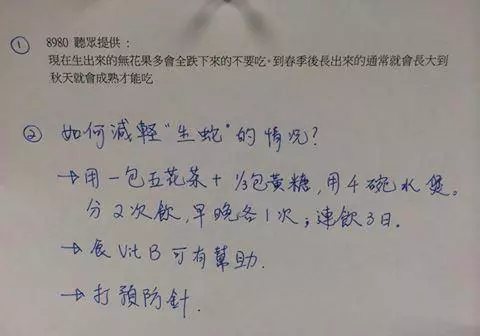 ① 8980 聽眾提供：
現在生出來的無花果多會全跌下來的不要吃。到春季後長出來的通常就會長大到
秋天就會成熟才能吃
② 如何減輕"生蛇"的情況？
→用一包五花茶+⅓包黃糖，用4碗水煲。
分2次飲，早晚各1次；連飲3日。
→食Vit B可有幫助.
→打預防針.